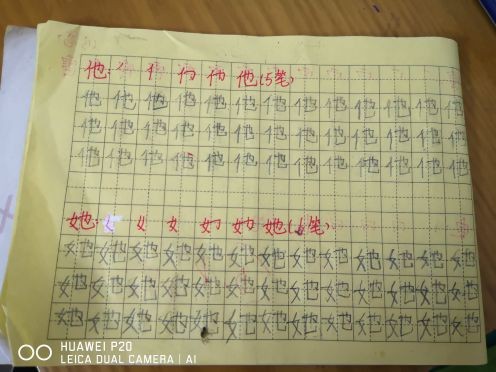 他: 丿 亻 他(5笔)
他他他他他他他他他他他他他
他他他他他他他他他他他他他
他他他他他他他他他他他他他
她: 女 她(6笔)
她她她她她她她她她她她她她
她她她她她她她她她她她她她
她她她她她她她她她她她她她
HUAWEI P20
LEICA DUAL CAMERA | AI